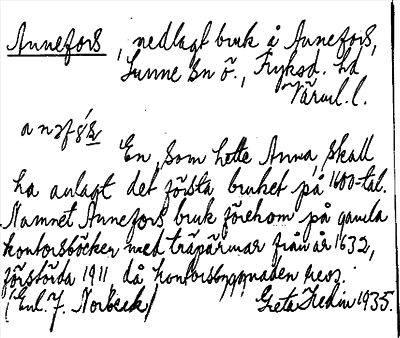 Annefors, nedlagt bruk å Annefors,
Sunne sn ö., Fryksd. hd
Värml. l.
En, som hette Anna, skall
ha anlagt det första bruket på 1600-tal.
Namnet Annefors bruk förekom på gamla
kontorsböcker med träpärmar från år 1632,
förstörda 1911, då kontorsbyggnaden revs.
(Enl. J. Norbeck) Greta Hedin 1935.